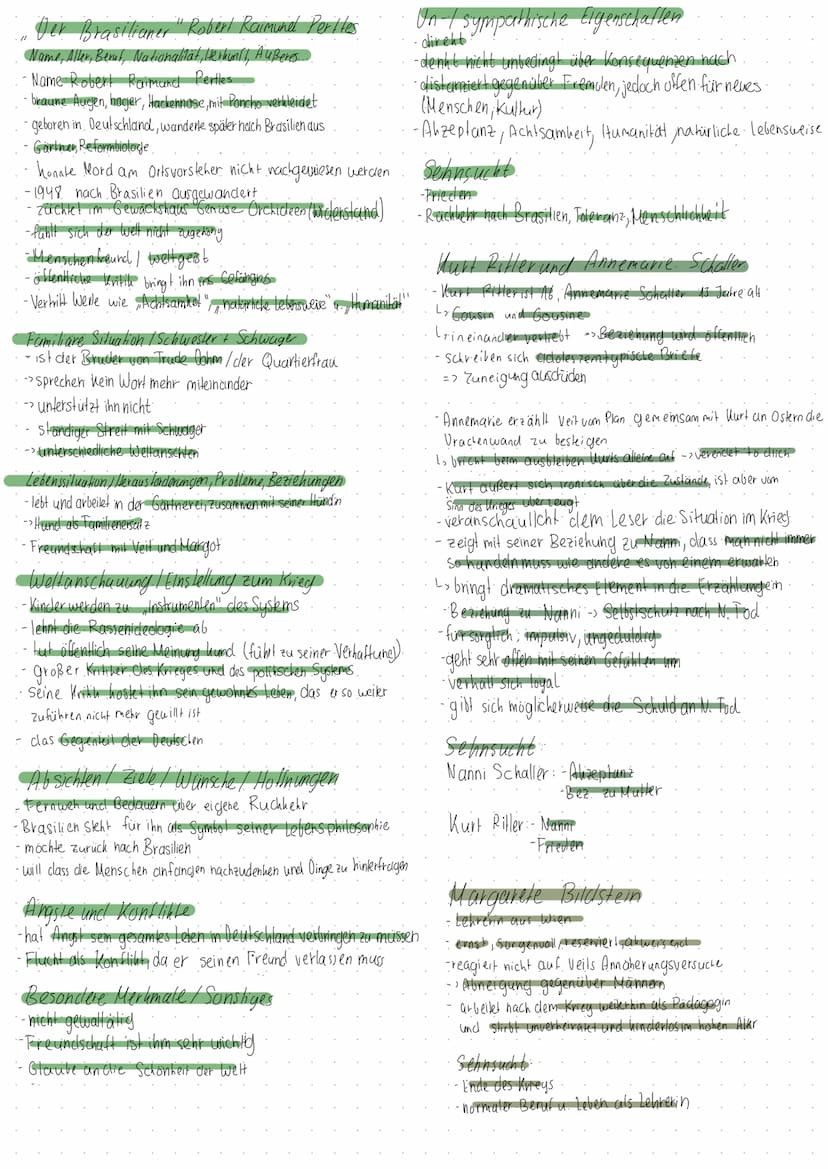 „Der Brasilianer" Robert Raimund Perttes
Name, Alter, Beruf, Nationalität, Herkunft, Äußeres
- Name Robert Raimund Perttes
- braune Augen, hager, Hackennase, mit Poncho verkleidet
- geboren in Deutschland, wanderte später nach Brasilien aus
- Gärtner, Reformbiologe
- konnte Mord am Ortsvorsteher nicht nachgewiesen werden
- 1948 nach Brasilien ausgewandert
- züchtet im Gewächshaus Gemüse Orchideen (Widerstand)
- fühlt sich der Welt nicht zugehörig
- Menschenfreund / Weltgeist
- öffentliche Kritik bringt ihn ins Gefängnis
- Vertritt Werte wie „Achtsamkeit", „natürliche Lebensweise" u. „Humanität"
Familiäre Situation / Schwester + Schwager
- ist der Bruder von Trude Dohm / der Quartierfrau
-> sprechen kein Wort mehr miteinander
-> unterstützt ihn nicht
- ständiger Streit mit Schwager
-> unterschiedliche Weltansichten
Lebenssituation / Herausforderungen, Probleme, Beziehungen
- lebt und arbeitet in der Gärtnerei, zusammen mit seiner Hündin
-> Hund als Familienersatz
- Freundschaft mit Veit und Margot
Weltanschauung / Einstellung zum Krieg
- Kinder werden zu „Instrumenten" des Systems
- lehnt die Rassenideologie ab
- tut öffentlich seine Meinung kund (führt zu seiner Verhaftung)
- großer Kritiker des Krieges und des politischen Systems
- seine Kritik kostet ihn sein gewohntes Leben, das er so weiter
zuführen nicht mehr gewillt ist
- das Gegenteil der Deutschen
Absichten / Ziele / Wünsche / Hoffnungen
- Fernweh und Bedauern über eigene Rückkehr
- Brasilien steht für ihn als Symbol seiner Lebensphilosophie
- möchte zurück nach Brasilien
- will dass die Menschen anfangen nachzudenken und Dinge zu hinterfragen
Ängste und Konflikte
- hat Angst sein gesamtes Leben in Deutschland verbringen zu müssen
- Flucht als Konflikt, da er seinen Freund verlassen muss
Besondere Merkmale / Sonstiges
- nicht gewalttätig
- Freundschaft ist ihm sehr wichtig
- Glaube an die Schönheit der Welt
Un-/sympathische Eigenschaften
- direkt
- denkt nicht unbedingt über Konsequenzen nach
- distanziert gegenüber Fremden, jedoch offen für neues
(Menschen, Kultur)
- Akzeptanz, Achtsamkeit, Humanität, natürliche Lebensweise
Sehnsucht
- Frieden
- Rückkehr nach Brasilien, Toleranz, Menschlichkeit
Kurt Ritler und Annemarie Schaller
- Kurt Ritler ist 16, Annemarie Schaller 13 Jahre alt
↳ Cousin und Cousine
↳ ineinander verliebt -> Beziehung wird öffentlich
- schreiben sich adoleszenztypische Briefe
=> Zuneigung ausdrücken
- Annemarie erzählt Veit vom Plan gemeinsam mit Kurt an Ostern die
Drachenwand zu besteigen
↳ bricht beim ausbleiben Kurts alleine auf -> verendet tödlich
- Kurt äußert sich ironisch über die Zustände, ist aber vom
Sinn des Krieges überzeugt
- veranschaulicht dem Leser die Situation im Krieg
- zeigt mit seiner Beziehung zu Nanni, dass man nicht immer
so handeln muss wie andere es von einem erwarten
↳ bringt dramatisches Element in die Erzählung ein
- Beziehung zu Nanni -> Selbstschutz nach N. Tod
- fürsorglich, impulsiv, ungeduldig
- geht sehr offen mit seinen Gefühlen um
- verhält sich loyal
- gibt sich möglicherweise die Schuld an N. Tod
Sehnsucht:
Nanni Schaller: - Akzeptanz
- Bez. zu Mutter
Kurt Ritler: - Nanni
- Frieden
Margarete Bildstein
- Lehrerin aus Wien
- ernst, sorgenvoll, reserviert, abweisend
- reagiert nicht auf Veits Annäherungsversuche
-> Abneigung gegenüber Männern
- arbeitet nach dem Krieg weiterhin als Pädagogin
und stirbt unverheiratet und kinderlos im hohen Alter
Sehnsucht:
- Ende des Kriegs
- normaler Beruf u. Leben als Lehrerin